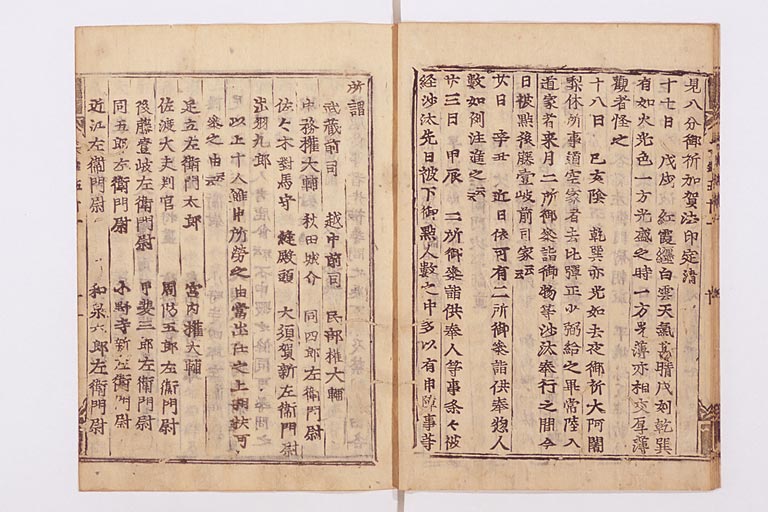 見八分御祈加賀法印定清
十七日 戊戌 紅霞纒白雲天氣 暗戌刻乾巽
有如火光色一方光盛之時一方光薄亦相交厚薄
觀者怪之
十八日 己亥陰 乾巽亦光如去夜御祈大阿闍
梨休所事道空家者去比彈正少弼給之畢常陸入
道家者來月二所御參詣御物等沙汰奉行之間今
日被點後藤壹岐前司家云云
廿日 辛丑 近日依可有二所御參詣供奉惣人
數如例注進之云云
廿三日 甲辰 二所御參詣供奉人等事條々被
經沙汰先日被下御點人數之中多以有申障事等
所謂
武藏前司 越中前司 民部權大輔
中務權大輔 秋田城介 同四郎左衞門尉
佐々木對馬守 縫殿頭 大須賀新左衞門尉
出羽九郎
已上十人雖申所勞之由當出仕之上相扶可
參之由云云
足立左衞門太郎 宮內權大輔
佐渡大夫判官 周防五郎左衞門尉
後藤壹岐左衞門尉 甲斐三郎左衞門尉
同五郎左衞門尉 小野寺新左衞門尉
近江左衞門尉 和泉六郎左衞門尉